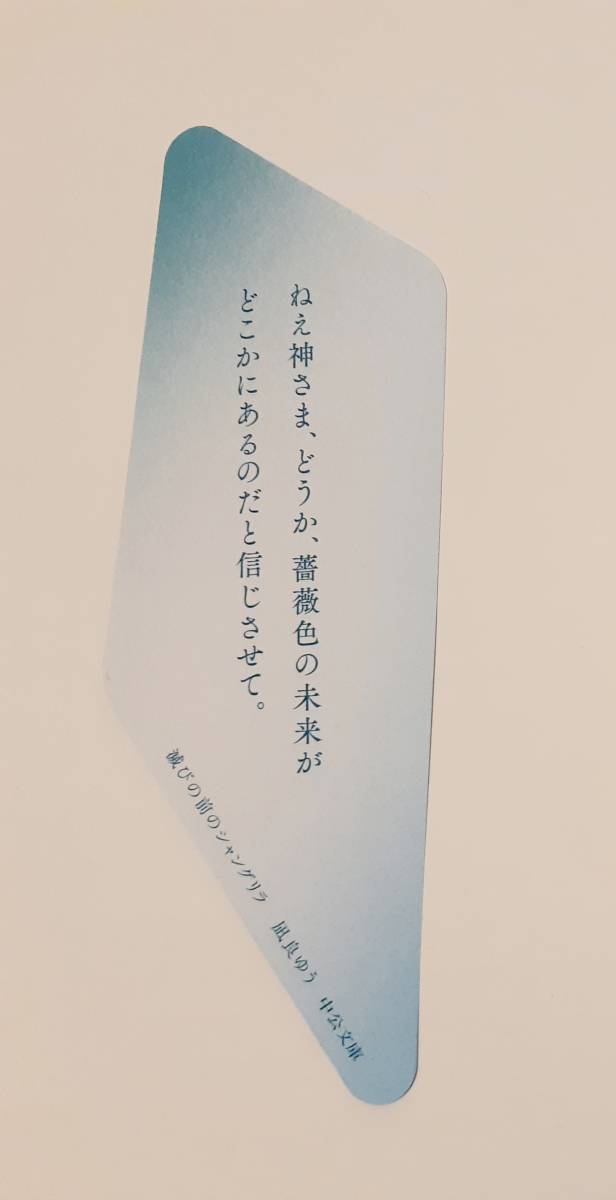 ねえ神さま、どうか、薔薇色の未来が
どこかにあるのだと信じさせて。
滅びの前のシャングリラ　凪良ゆう　中公文庫